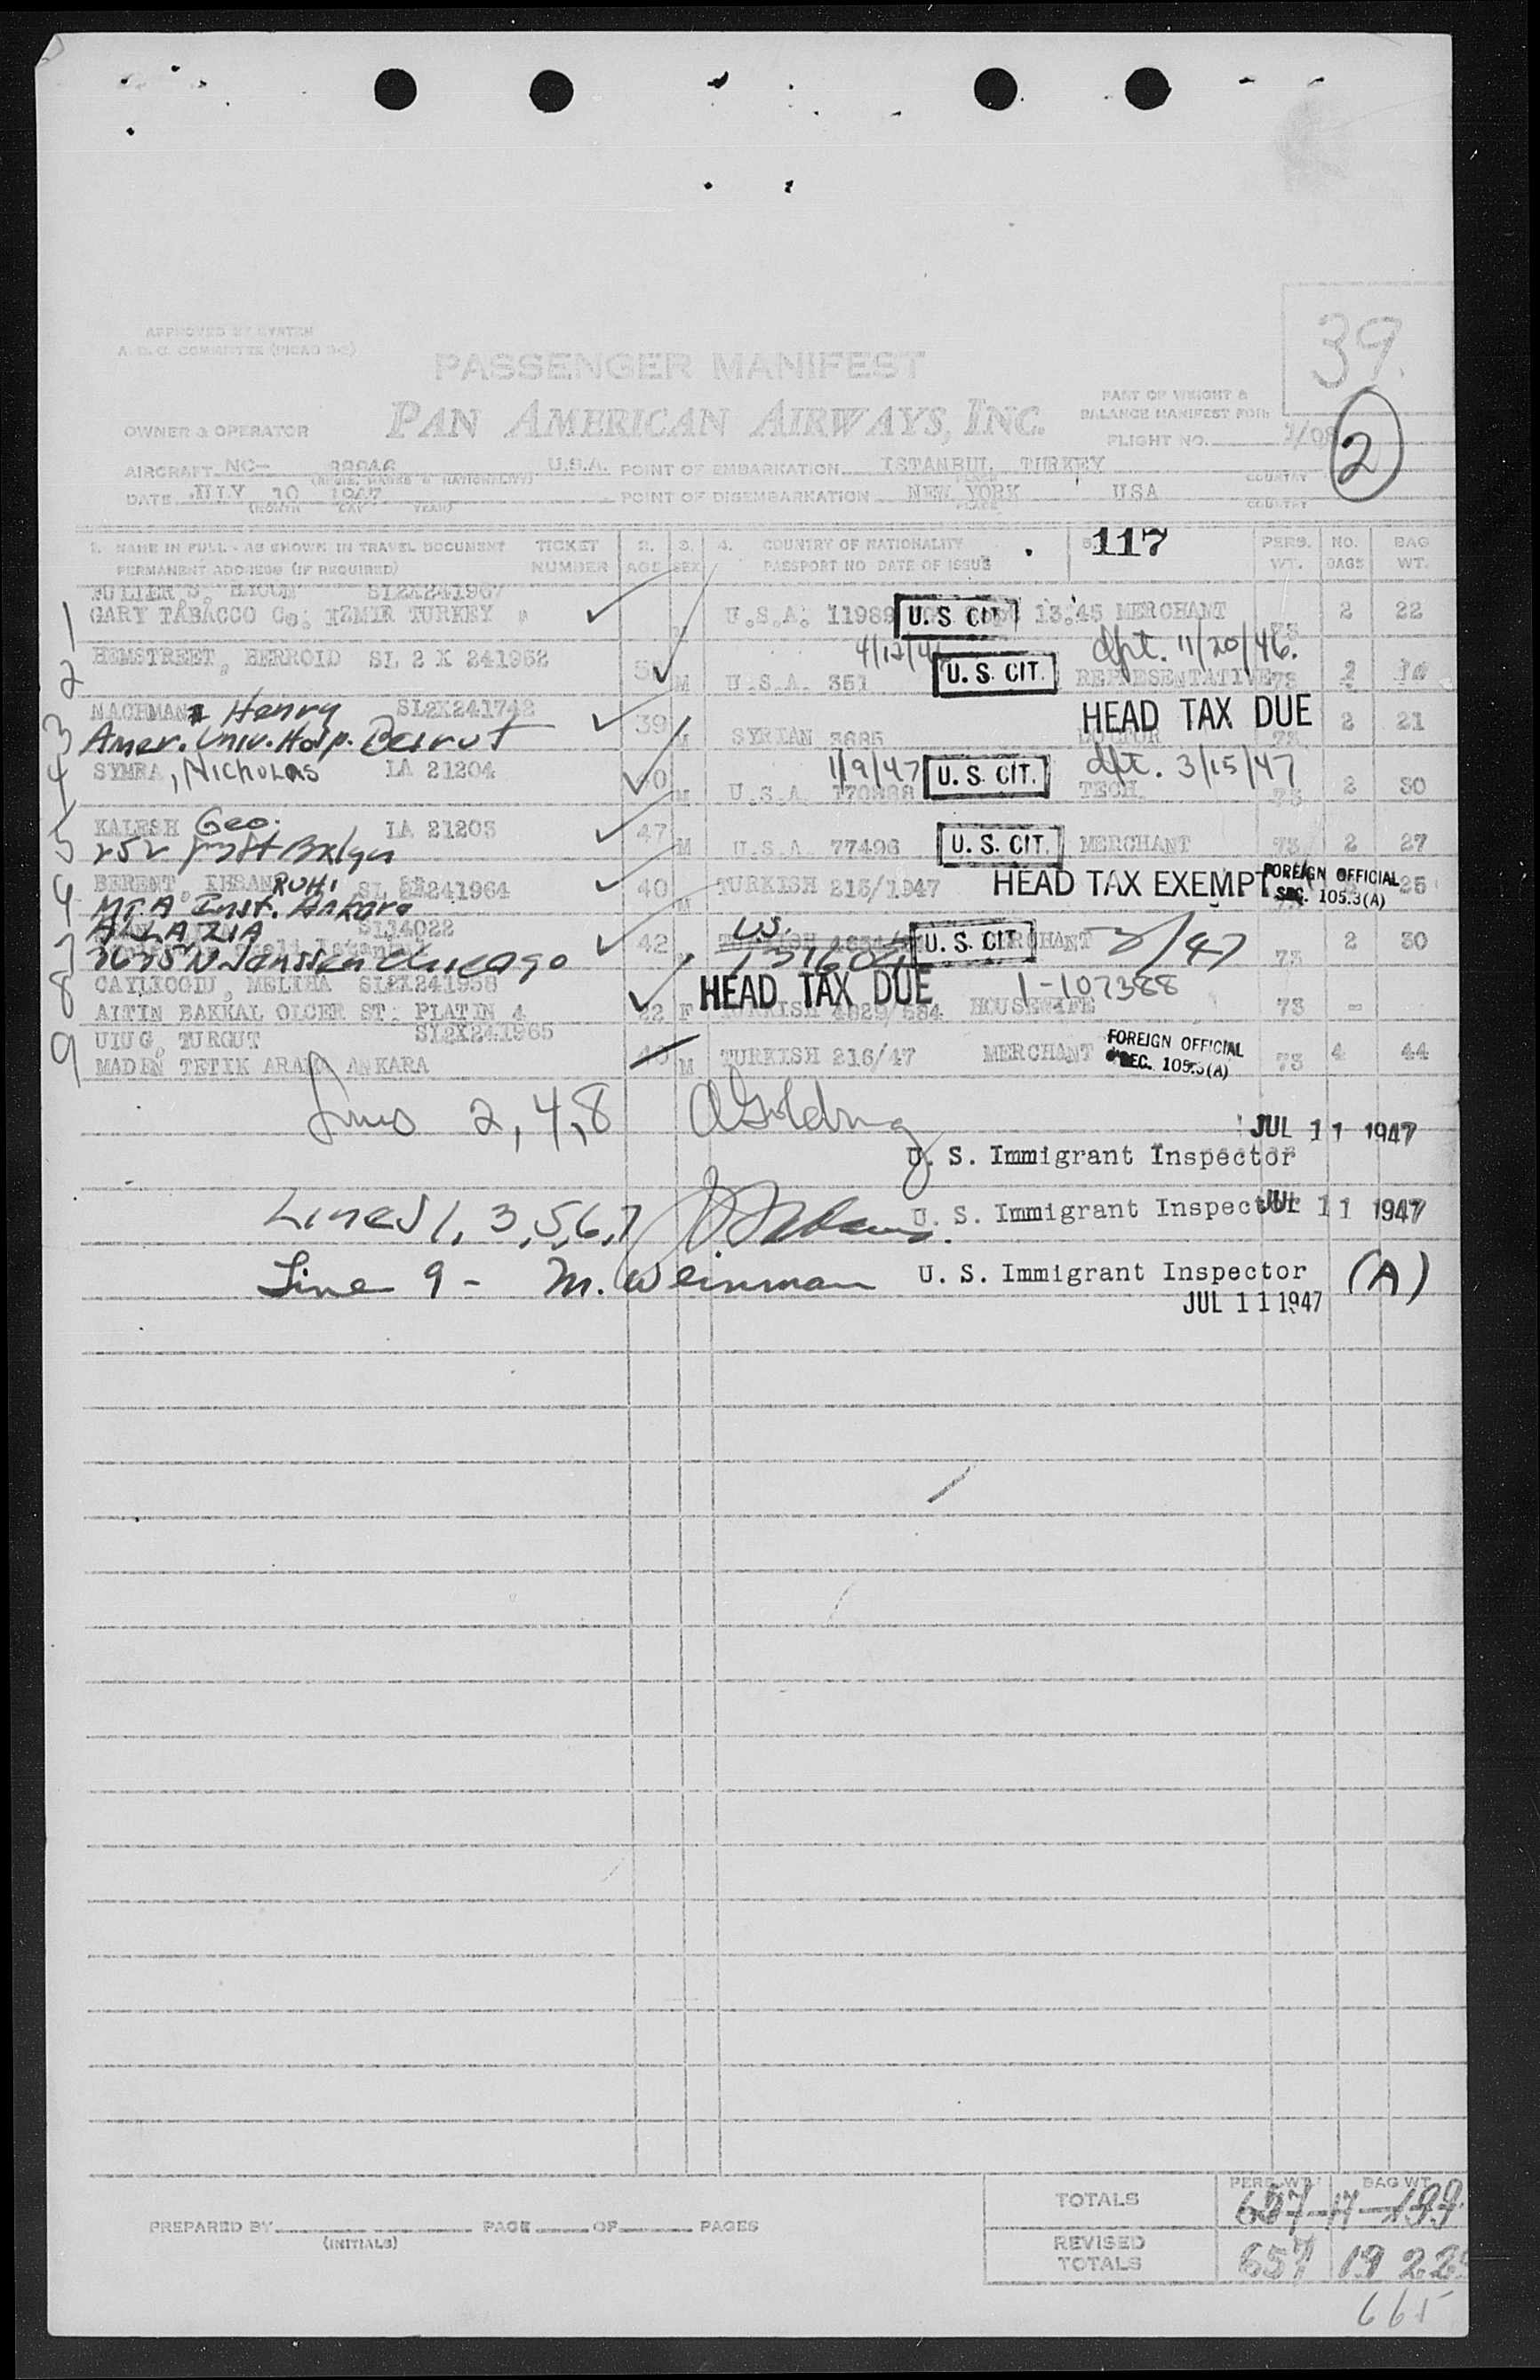 39.
APPROVED BY SYSTEM
A.D.C. COMMITTEE (PICAO
PASSENGER MANIFEST
PAN AMERICAN AIRWAYS, INC.
PART OF WEIGHT &
BALANCE MANIFEST FOR:
OWNER & OPERATOR
FLIGHT NO.
2
AIRCRAFT NC- U.S.A. POINT OF EMBARKATION ISTANBUL TURKEY
PLACE COUNTRY
DATE JULY 10 1947 POINT OF DISEMBARKATION NEW YORK USA
(MONTH DAY YEAR) PLACE COUNTRY
1. NAME IN FULL - AS SHOWN IN TRAVEL DOCUMENT TICKET 2. 3. 4. COUNTRY OF NATIONALITY 5. 117 PERS. NO. BAG
PERMANENT ADDRESS (IF REQUIRED) NUMBER AGE SEX PASSPORT NO DATE OF ISSUE WT. BAGS WT.
SL2X241967
1 GARY TABACCO Co. TURKEY U.S.A. U.S. CIT. 13.45 MERCHANT 2 22
dpt. 11/20/46.
2 HEMSTREET, HERROID SL 2 X 241962 M U.S.A. 351 U.S. CIT. REPRESENTATIVE 73 2
NACHMAN Henry SL2X241742 HEAD TAX DUE
3 Amer. Univ. Hosp. Beirut 39 M SYRIAN 3685 DOCTOR 73 2 21
1/9/47 dpt. 3/15/47
4 SYMRA, Nicholas IA 21204 M U.S.A. U.S. CIT. TECH. 73 2 30
KALESH Geo. IA 21203
5 252 47 M U.S.A. 77496 U.S. CIT. MERCHANT 73 2 27
BERENT, IHSAN RUHI SL 241964 40 M TURKISH 215/1947 HEAD TAX EXEMPT FOREIGN OFFICIAL SEC. 105.3(A) 25
6 MTA Inst. Ankara
ALLA ZIA SL14022
7 N Janssen Chicago 42 U.S. U.S. CIT MERCHANT 2/47 73 2 30
CAYLIOGLU, MELIHA SL2X241958 HEAD TAX DUE 1-107388
8 AITIN BAKKAL OLCER ST. PLATIN 4 F TURKISH HOUSEWIFE 73 -
ULUG, TURGUT SL2X241965 FOREIGN OFFICIAL
9 MADEN TETIK ARAMA ANKARA M TURKISH 216/47 MERCHANT SEC. 105.3(A) 73 4 44
Lines 2, 4, 8 JUL 11 1947
U. S. Immigrant Inspector
Lines 1, 3, 5, 6, 7 U. S. Immigrant Inspector JUL 11 1947
Line 9 - M. Weinman U. S. Immigrant Inspector (A)
JUL 11 1947
PERS. WT. BAG WT.
TOTALS 657 17 199
PREPARED BY PAGE OF PAGES
(INITIALS)
REVISED
TOTALS 657 19
665